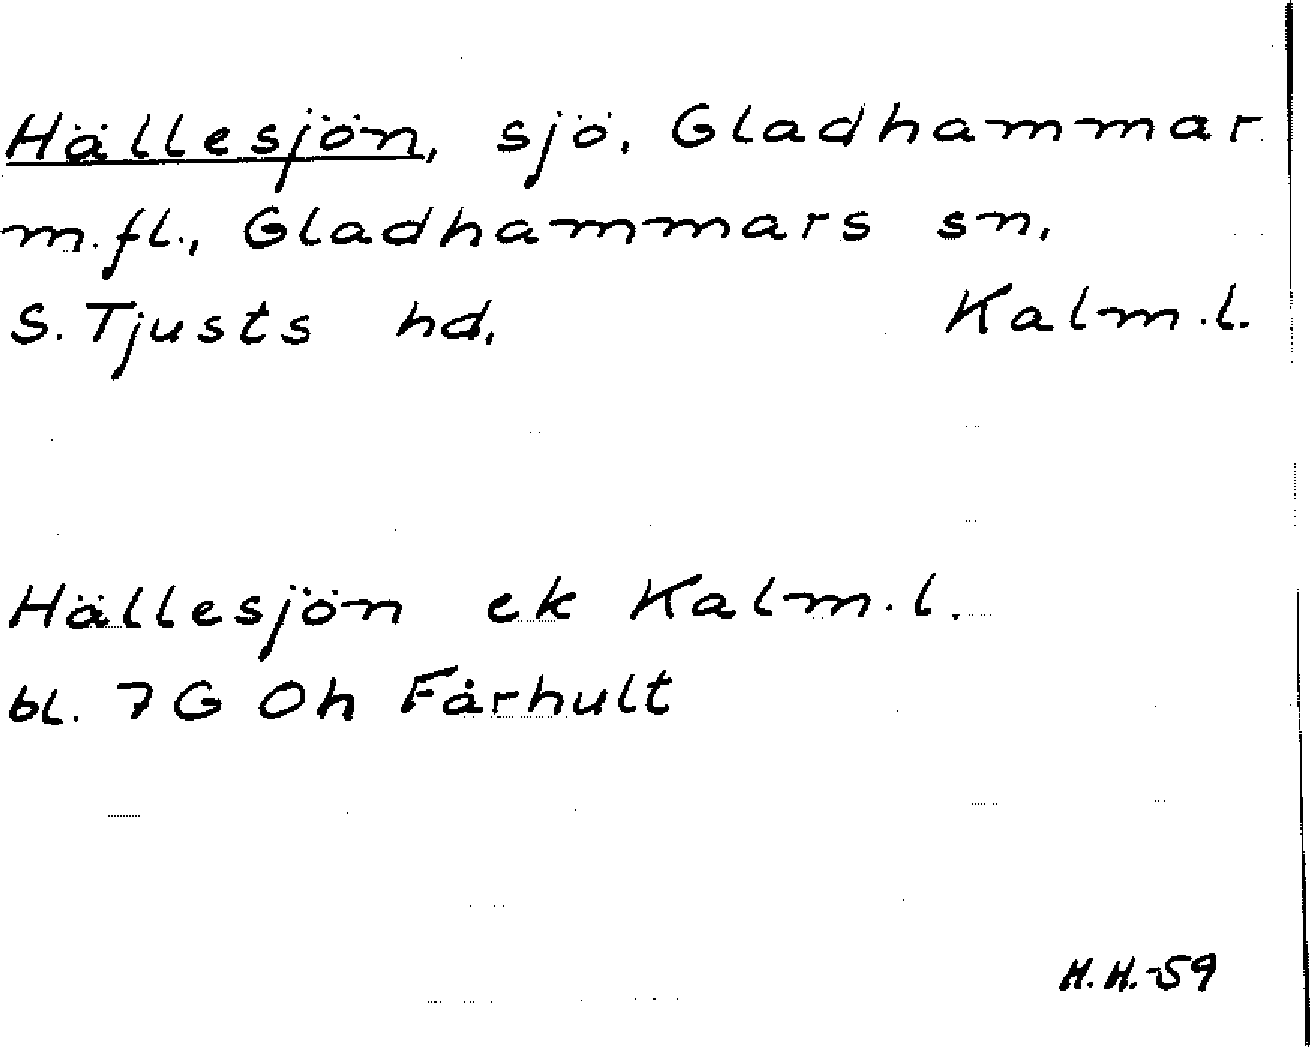 Hällesjön, sjö, Gladhammar
m.fl., Gladhammars sn,
S. Tjusts hd. Kalm.l.
Hällesjön ek Kalm.l.
bl. 7G 0h Fårhult
H.H.-59